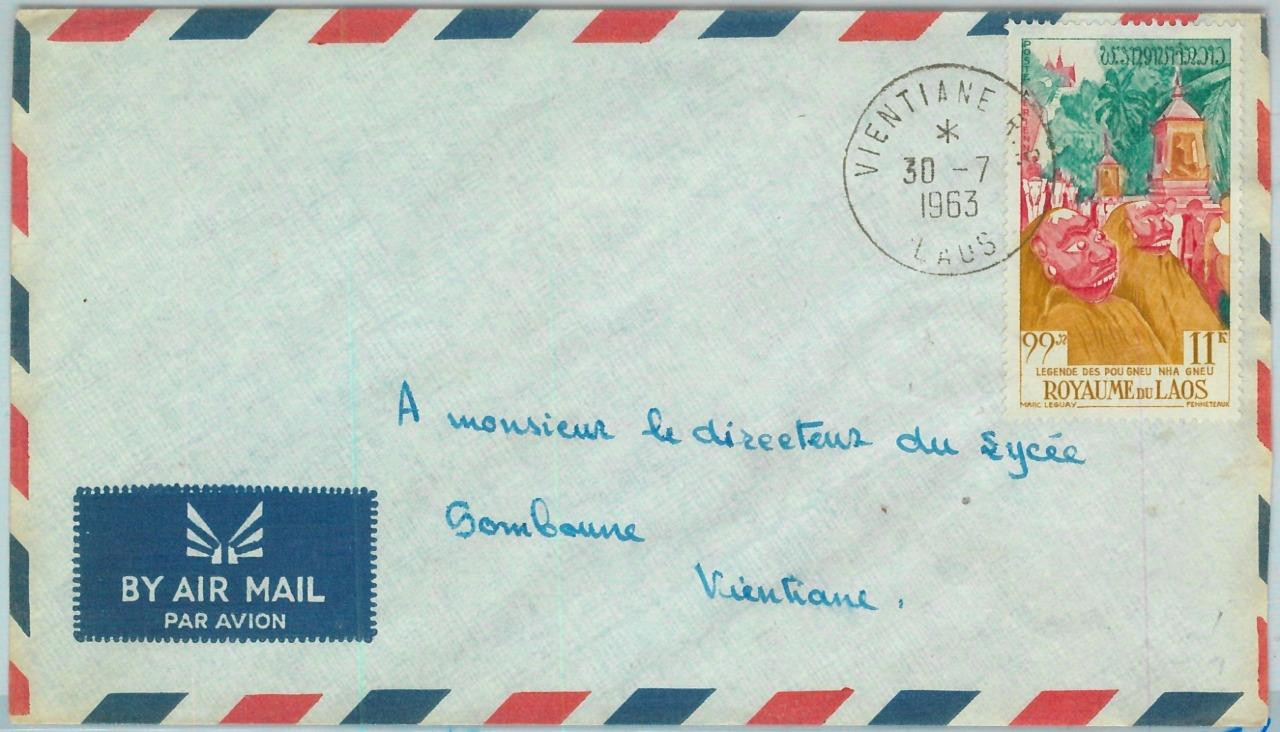 VIENTIANE
30 -7
1963
LAOS
POSTE AERIENNE
99
11K
LEGENDE DES POU GNEU NHA GNEU
ROYAUME DU LAOS
MARC LEGUAY
FENNETEAUX
A monsieur le directeur du Lycée
Somboune
Vientiane.
BY AIR MAIL
PAR AVION